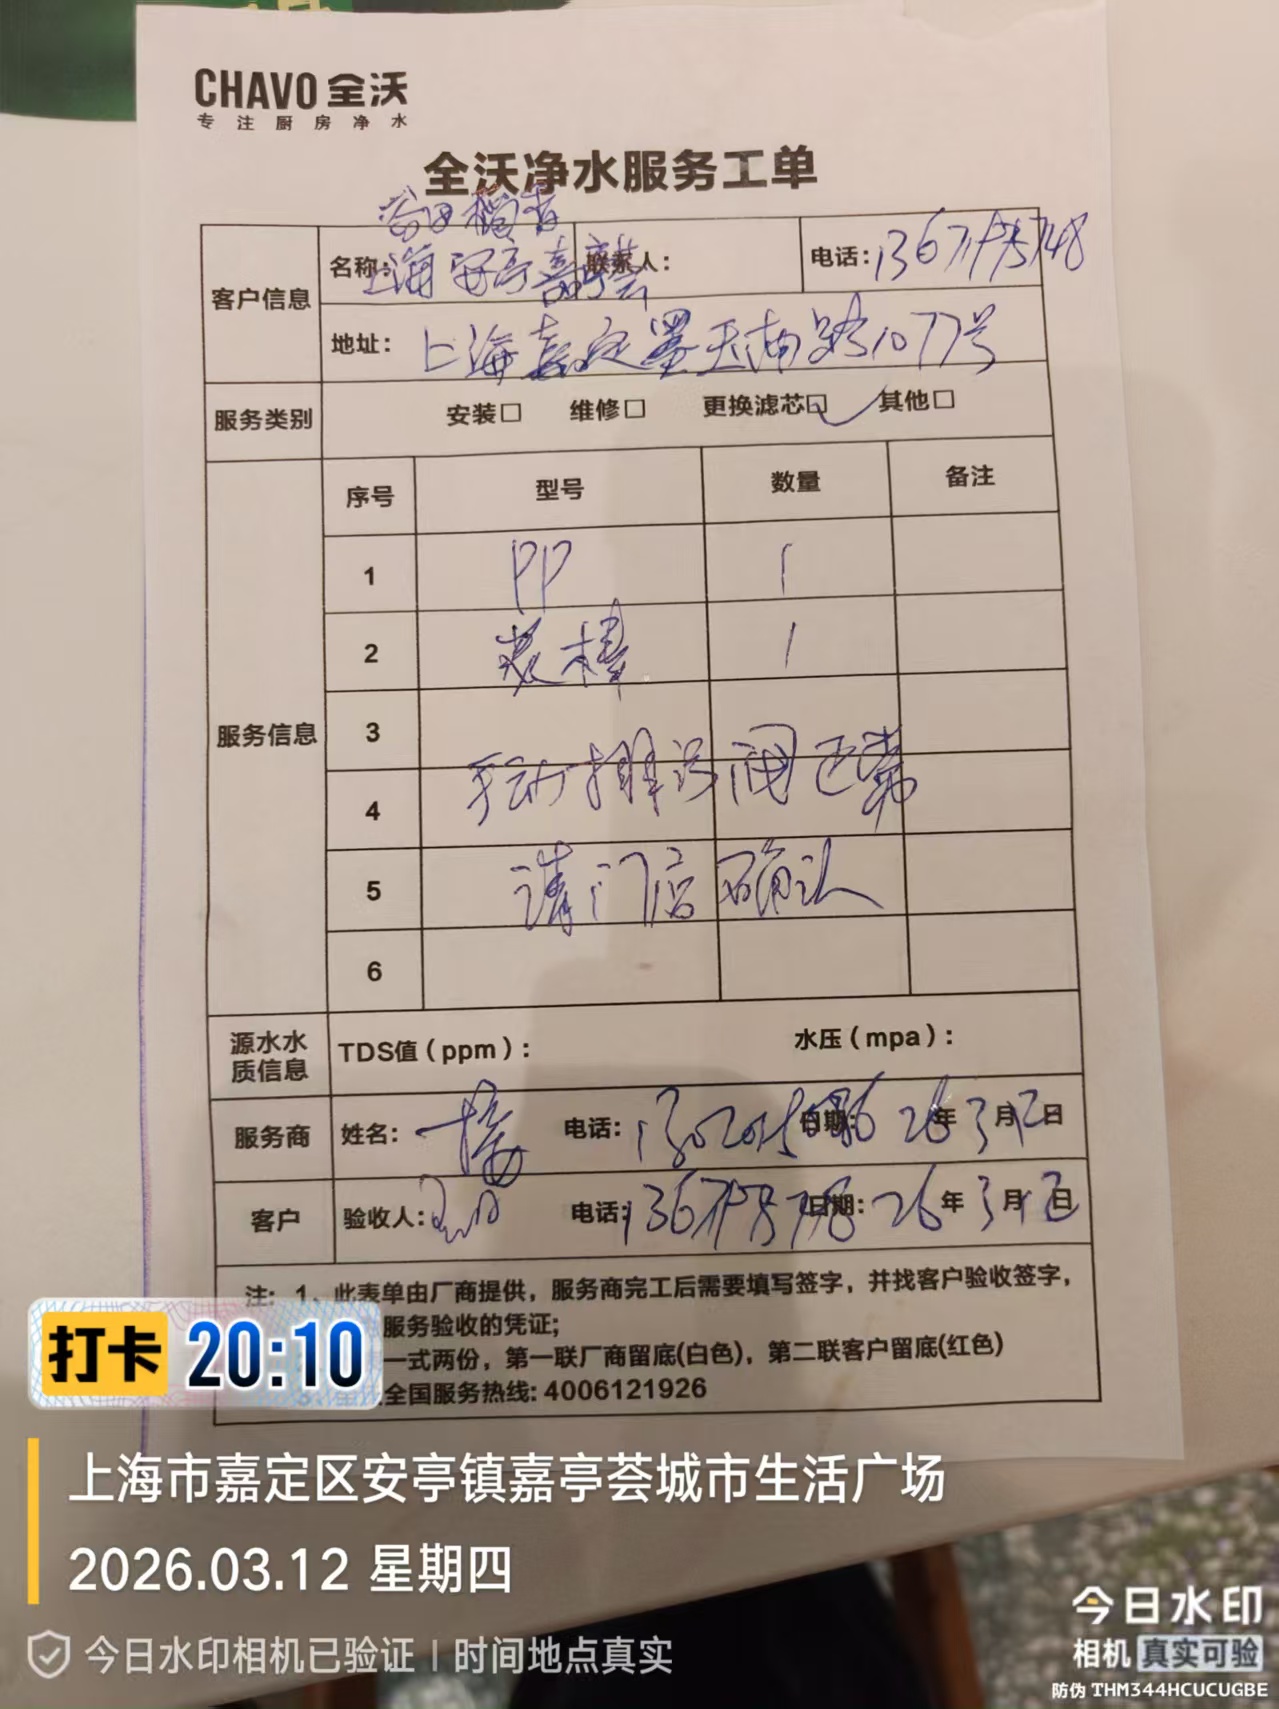 CHAVO 全沃
专注厨房净水
全沃净水服务工单
客户信息
名称: 上海安亭嘉亭荟
联系人:
电话:
地址: 上海嘉定墨玉南路1077号
服务类别 安装□ 维修□ 更换滤芯☑ 其他□
服务信息
序号 型号 数量 备注
1 PP 1
2 炭棒 1
3
手动排污阀正常
4
5 请门店确认
6
源水水质信息 TDS值(ppm): 水压(mpa):
服务商 姓名: 电话: 日期: 26年3月12日
客户 验收人: 电话: 日期: 26年3月12日
注: 1、此表单由厂商提供，服务商完工后需要填写签字，并找客户验收签字，
服务验收的凭证;
一式两份，第一联厂商留底(白色)，第二联客户留底(红色)
全国服务热线: 4006121926
打卡 20:10
上海市嘉定区安亭镇嘉亭荟城市生活广场
2026.03.12 星期四
今日水印相机已验证 | 时间地点真实
今日水印
相机 真实可验
防伪 THM344HCUCUGBE